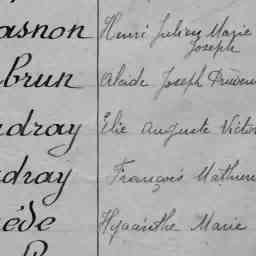 asnon Henri Julien Marie
Joseph
brun Alcide Joseph
dray Elie Auguste Victor
dray François Mathurin
ède Hyacinthe Marie